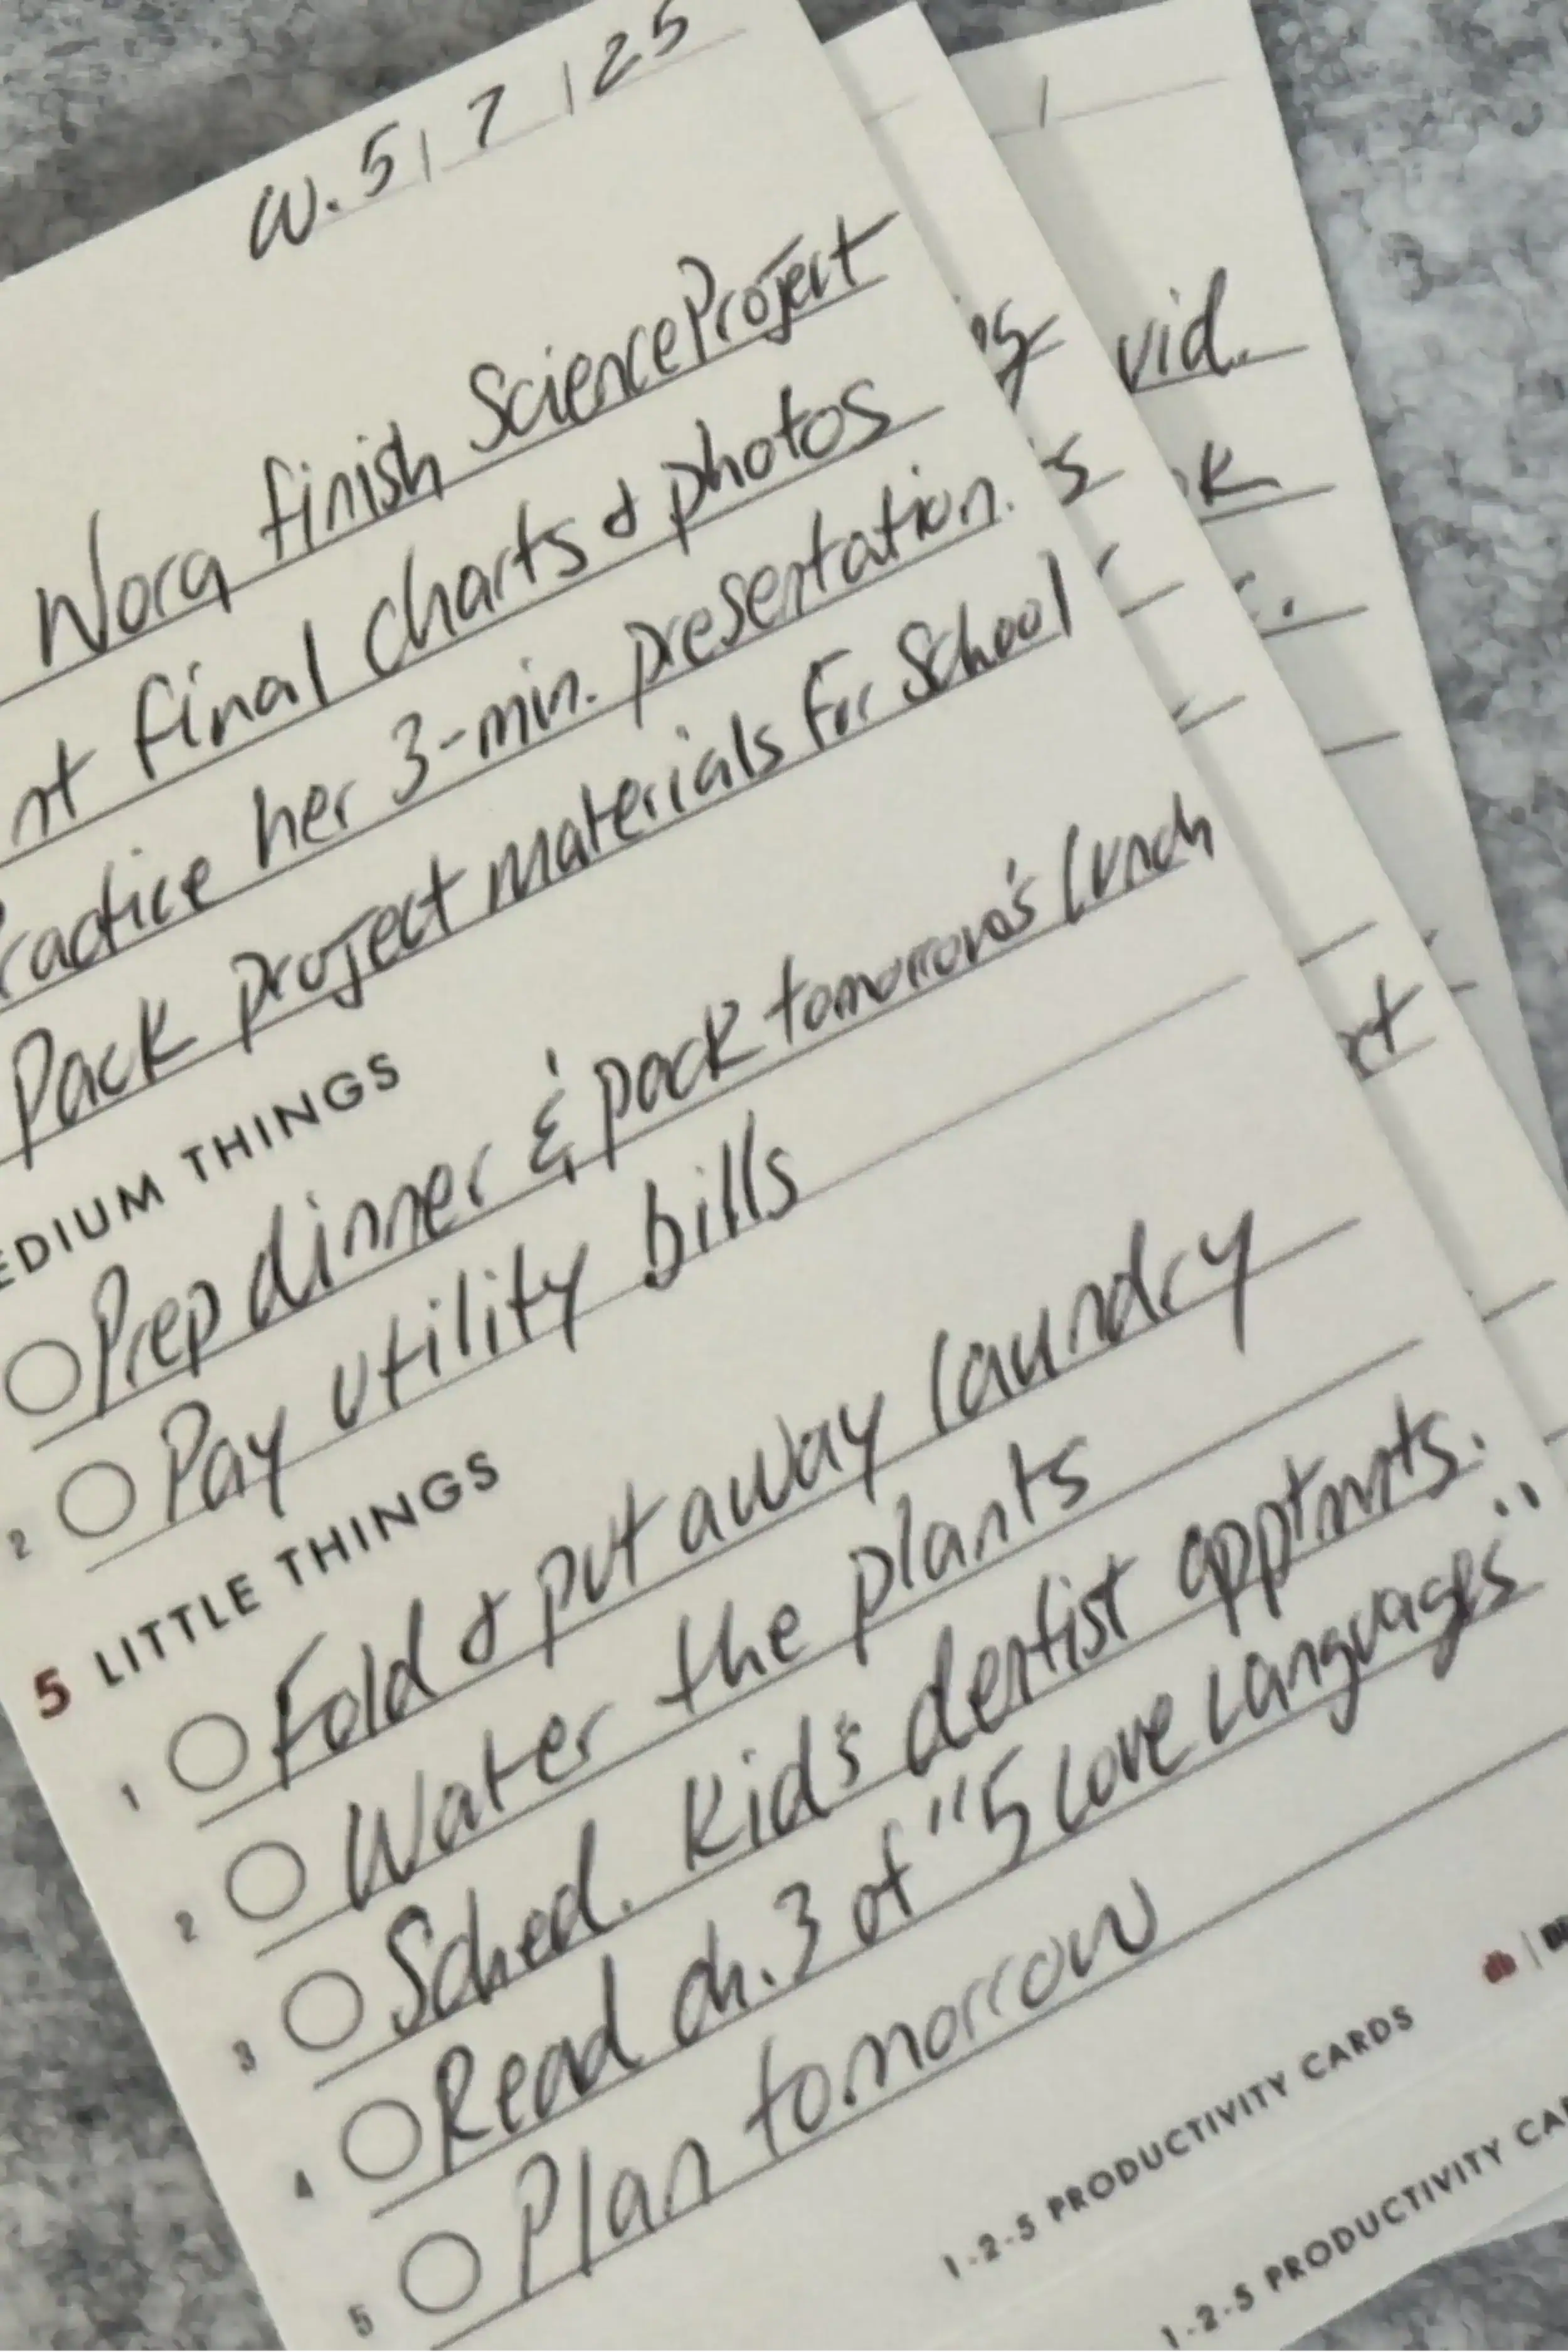 W. 5 | 7 | 25
Nora finish Science Project
nt final charts & photos
ractice her 3-min. presentation.
Pack project materials for School
EDIUM THINGS
Prep dinner & pack tomorrow's lunch
2 Pay utility bills
5 LITTLE THINGS
1 Fold & put away laundry
2 Water the plants
3 Sched. Kid's dentist apptmts.
4 Read ch. 3 of "5 Love Languages"
5 Plan tomorrow
1-2-5 PRODUCTIVITY CARDS
1-2-5 PRODUCTIVITY CA
vid.
k
s
ct